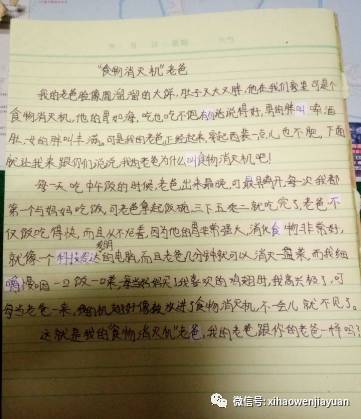 “食物消灭机”老爸
我的老爸脸像圆溜溜的大饼,肚子又大又胖,他在我们家里可是个
食物消灭机,他的胃如海,吃也吃不饱,俗话说得好,男的胖叫啤酒
肚,女的胖叫丰满。可是我的老爸正经起来,穿起西装一点儿也不胖,下面
就让我来跟你们说说我的老爸为什么叫食物消灭机吧!
每一天吃中午饭的时候,老爸出来最晚,可最早离开,每次我都
第一个与妈妈吃饭,可老爸拿起饭碗,三下五除二就吃完了,老爸不
仅饭吃得快,而且从不吃素,因为他的胃非常强大,消化食物非常好,
就像个科技发达的电脑,而且老爸几分钟就可以消灭一盘菜,而我细
嚼慢咽一口饭一口菜,每当妈妈买了我喜欢的鸡翅 我高兴极了,可
每当老爸一来,鸡翅好像被放进了食物消灭机,不一会儿就不见了。
这就是我的“食物消灭机”老爸,我的老爸跟你的老爸一样吗?
微信号: xihaowenjiayuan